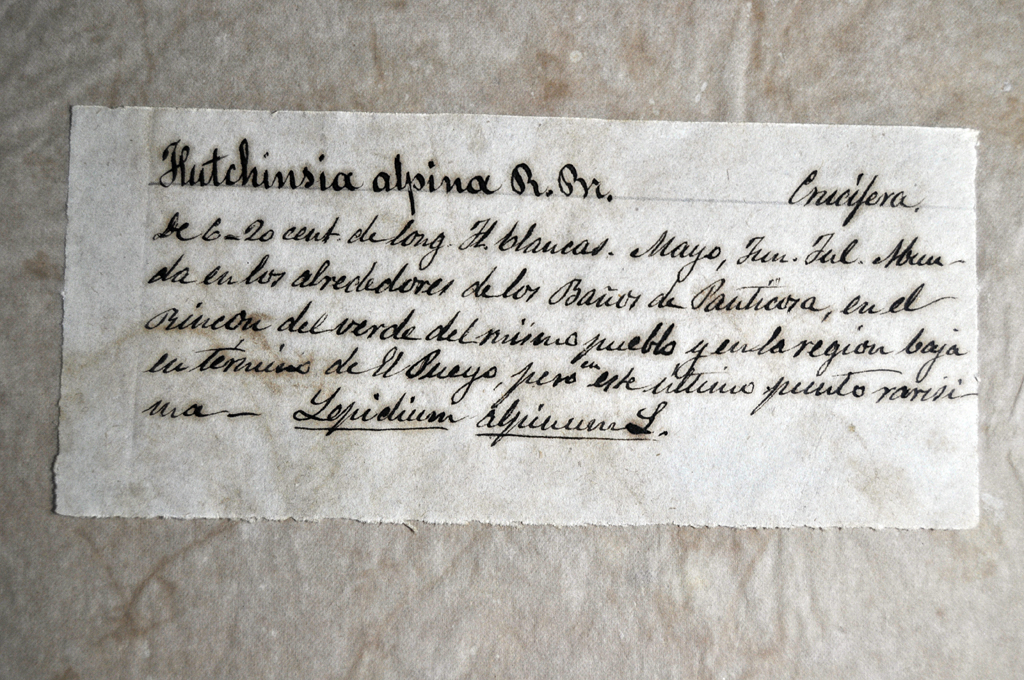 Hutchinsia alpina R. Br. Crucífera.
De 6-20 cent. de long. Fl. blancas. Mayo, Jun. Jul. Abun-
da en los alrededores de los Baños de Panticosa, en el
Rincon del verde del mismo pueblo y en la region baja
en término de El Pueyo, pero en este último punto rarisi-
ma — Lepidium alpinum L.